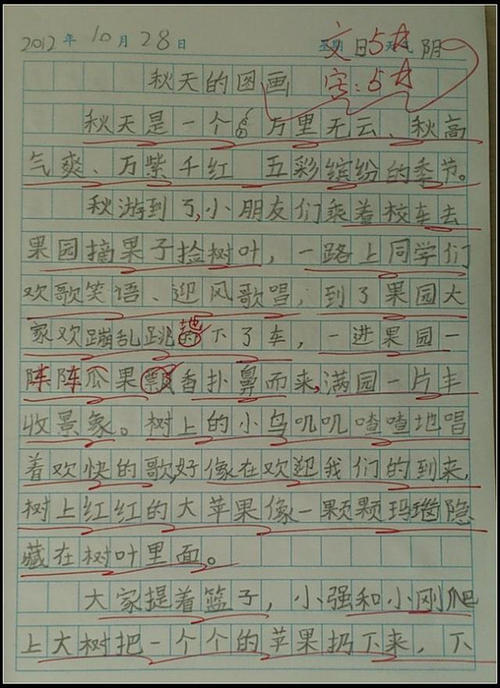 2012年10月28日 文:5大 阴
秋天的图画 字:5大
秋天是一个万里无云、秋高
气爽、万紫千红 五彩缤纷的季节。
秋游到了,小朋友们乘着校车去
果园摘果子捡树叶,一路上同学们
欢歌笑语、迎风歌唱,到了果园大
家欢蹦乱跳地下了车,一进果园一
阵阵瓜果飘香扑鼻而来,满园一片丰
收景象。树上的小鸟叽叽喳喳地唱
着欢快的歌,好像在欢迎我们的到来,
树上红红的大苹果像一颗颗玛瑙隐
藏在树叶里面。
大家提着篮子,小强和小刚爬
上大树把一个个的苹果扔下来,下